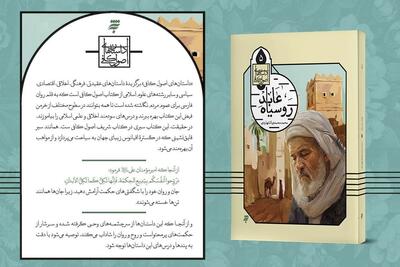 داستان‌های
اصول کافی
«داستان‌های اصول کافی» برگزیدهٔ داستان‌های عقیدتی، فرهنگی، اخلاقی، اقتصادی،
سیاسی و سایر رشته‌های علوم اسلامی از کتاب اصول کافی است که به قلم روان
فارسی برای عموم مردم، نگاشته شده است تا همه بتوانند در سطوح مختلف از خرمن
فیض این کتاب بهره ببرند و درس‌های سودمند اخلاقی و علمی اسلامی را بیاموزند.
در حقیقت، این کتاب سیری در کتاب شریف اصول کافی است. همانند سیر
قایق‌نشینی که در گسترهٔ اقیانوس زیبای جهان به سیاحت می‌پردازد و از مواهب
آن بهره‌مند می‌شود.
از آنجا که امیرمؤمنان علی فرمود:
جان و روان خود را با شگفتی‌های حکمت آرامش دهید، زیرا جان‌ها همانند
تن‌ها خسته می‌شوند»
و از آنجا که این داستان‌ها از سرچشمه‌های وحی گرفته شده و سرشار از
حکمت‌های پرمحتواست و روح و روان را شاداب می‌کند، توصیه می‌شود با دقت
به پندها و درس‌های این داستان‌ها توجه شود.
۵
عابد
روسیاه